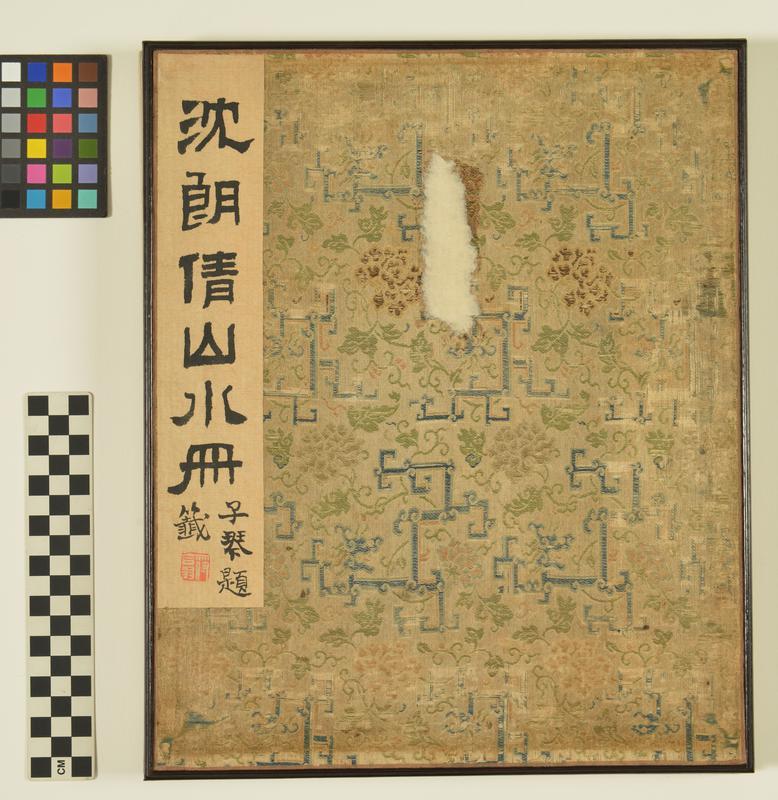 沈朗倩山水冊
子琴題
籤
CM